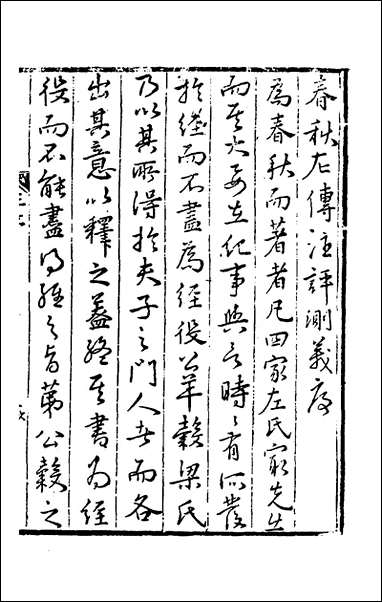 春秋左傳注評測義序
為春秋而著者凡四家左氏最先出
而其大要在紀事與言時時有所發
於經而不盡為經役公羊穀梁氏
乃以其所得於夫子之門人者而各
出其意以釋之蓋極其書為經
役而不能盡得經之旨第公穀之